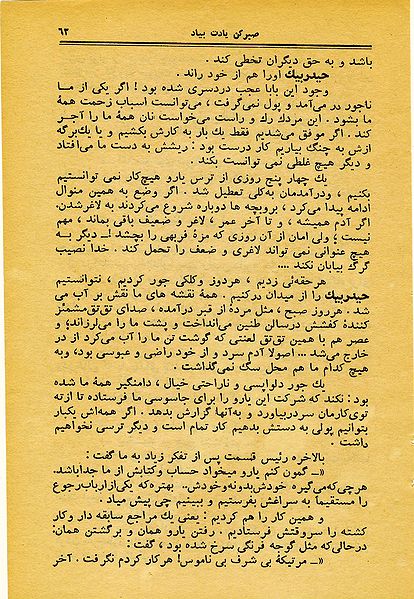 صبر کن یادت بیاد ۶۳
باشد و به حق دیگران تخطی کند .
حیدربیك اورا هم از خود راند .
وجود این بابا عجب دردسری شده بود ! اگر یکی از مـا
ناجور درمی‌آمد و پول نمی‌گرفت ، می‌توانست اسباب زحمت همهٔ
ما بشود . این مردك رك و راست می‌خواست نان همهٔ ما را آجـر
کند . اگر موفق می‌شدیم فقط یك بار به کارش بکشیم و یا یك‌برگه
ازش به چنگ بیاریم کار درست بود : ریشش به دست ما می‌افتاد
و دیگر هیچ غلطی نمی توانست بکند .
یك چهار پنج روزی از ترس یارو هیچ‌کار نمی توانستیم
بکنیم ، ودرآمدمان به‌کلی تعطیل شد . اگر وضع به همین منوال
ادامه پیدا می‌کرد ، بروبچه ها دوباره شروع می‌کردند به لاغرشدن.
اگر آدم همیشه ، و تا آخر عمر ، لاغر و ضعیف باقی بماند ، مهم
نیست ؛ ولی امان از آن روزی که مزهٔ فربهی را بچشد !.. دیگر بـه
هیچ عنوانی نمی تواند لاغری و ضعف را تحمل کند . خدا نصیب
گرگ بیابان نکند ....
هرحقه‌ئی زدیم ، هردوز وکلکی جور کردیم ، نتوانستیم
حیدربیك را از میدان درکنیم . همهٔ نقشه های ما نقش بر آب می
شد . هرروز صبح ، مثل مرده از قبر درآمده ، صدای تق‌تق مشمئز
کنندهٔ کفشش درسالن طنین می‌انداخت و پشت ما را می‌لرزاند؛ و
عصر هم با همین تق‌تق لعنتی که گوشت تن ما را آب می‌کرد از در
خارج می‌شد ... اصولا آدم سرد و از خود راضی و عبوسی بود، وبه
هیچ کدام ما هم محل سگ نمی‌گذاشت .
یك جور دلواپسی و ناراحتی خیال ، دامنگیر همهٔ ما شده
بود : نکند که شرکت این یارو را برای جاسوسی ما فرستاده تا ازته
توی‌کارمان سردربیاورد و به‌آنها گزارش بدهد . اگر همه‌اش یکبار
بتوانیم پولی به دستش بدهیم کار تمام است و دیگر ترسی نخواهیم
داشت .
بالاخره رئیس قسمت پس از تفکر زیاد به ما گفت :
«ـ گمون کنم یارو میخواد حساب وکتابش از ما جداباشد.
هرچی‌که‌می‌گیره خودش‌بدونه‌وخودش.. بهتره‌که یکی‌ازارباب‌رجوع
را مستقیماً به سراغش بفرستیم و ببینیم چی پیش میاد .
و همین کار را هم کردیم : یعنی یك مراجع سابقه دار وکار
کشته را سروقتش فرستادیم . رفتن یارو همان و برگشتن همان:
درحالی‌که مثل گوجه فرنگی سرخ شده بود ، گفت :
«ـ مرتیکهٔ بی شرف بی ناموس! هرکار کردم نگرفت . آخر